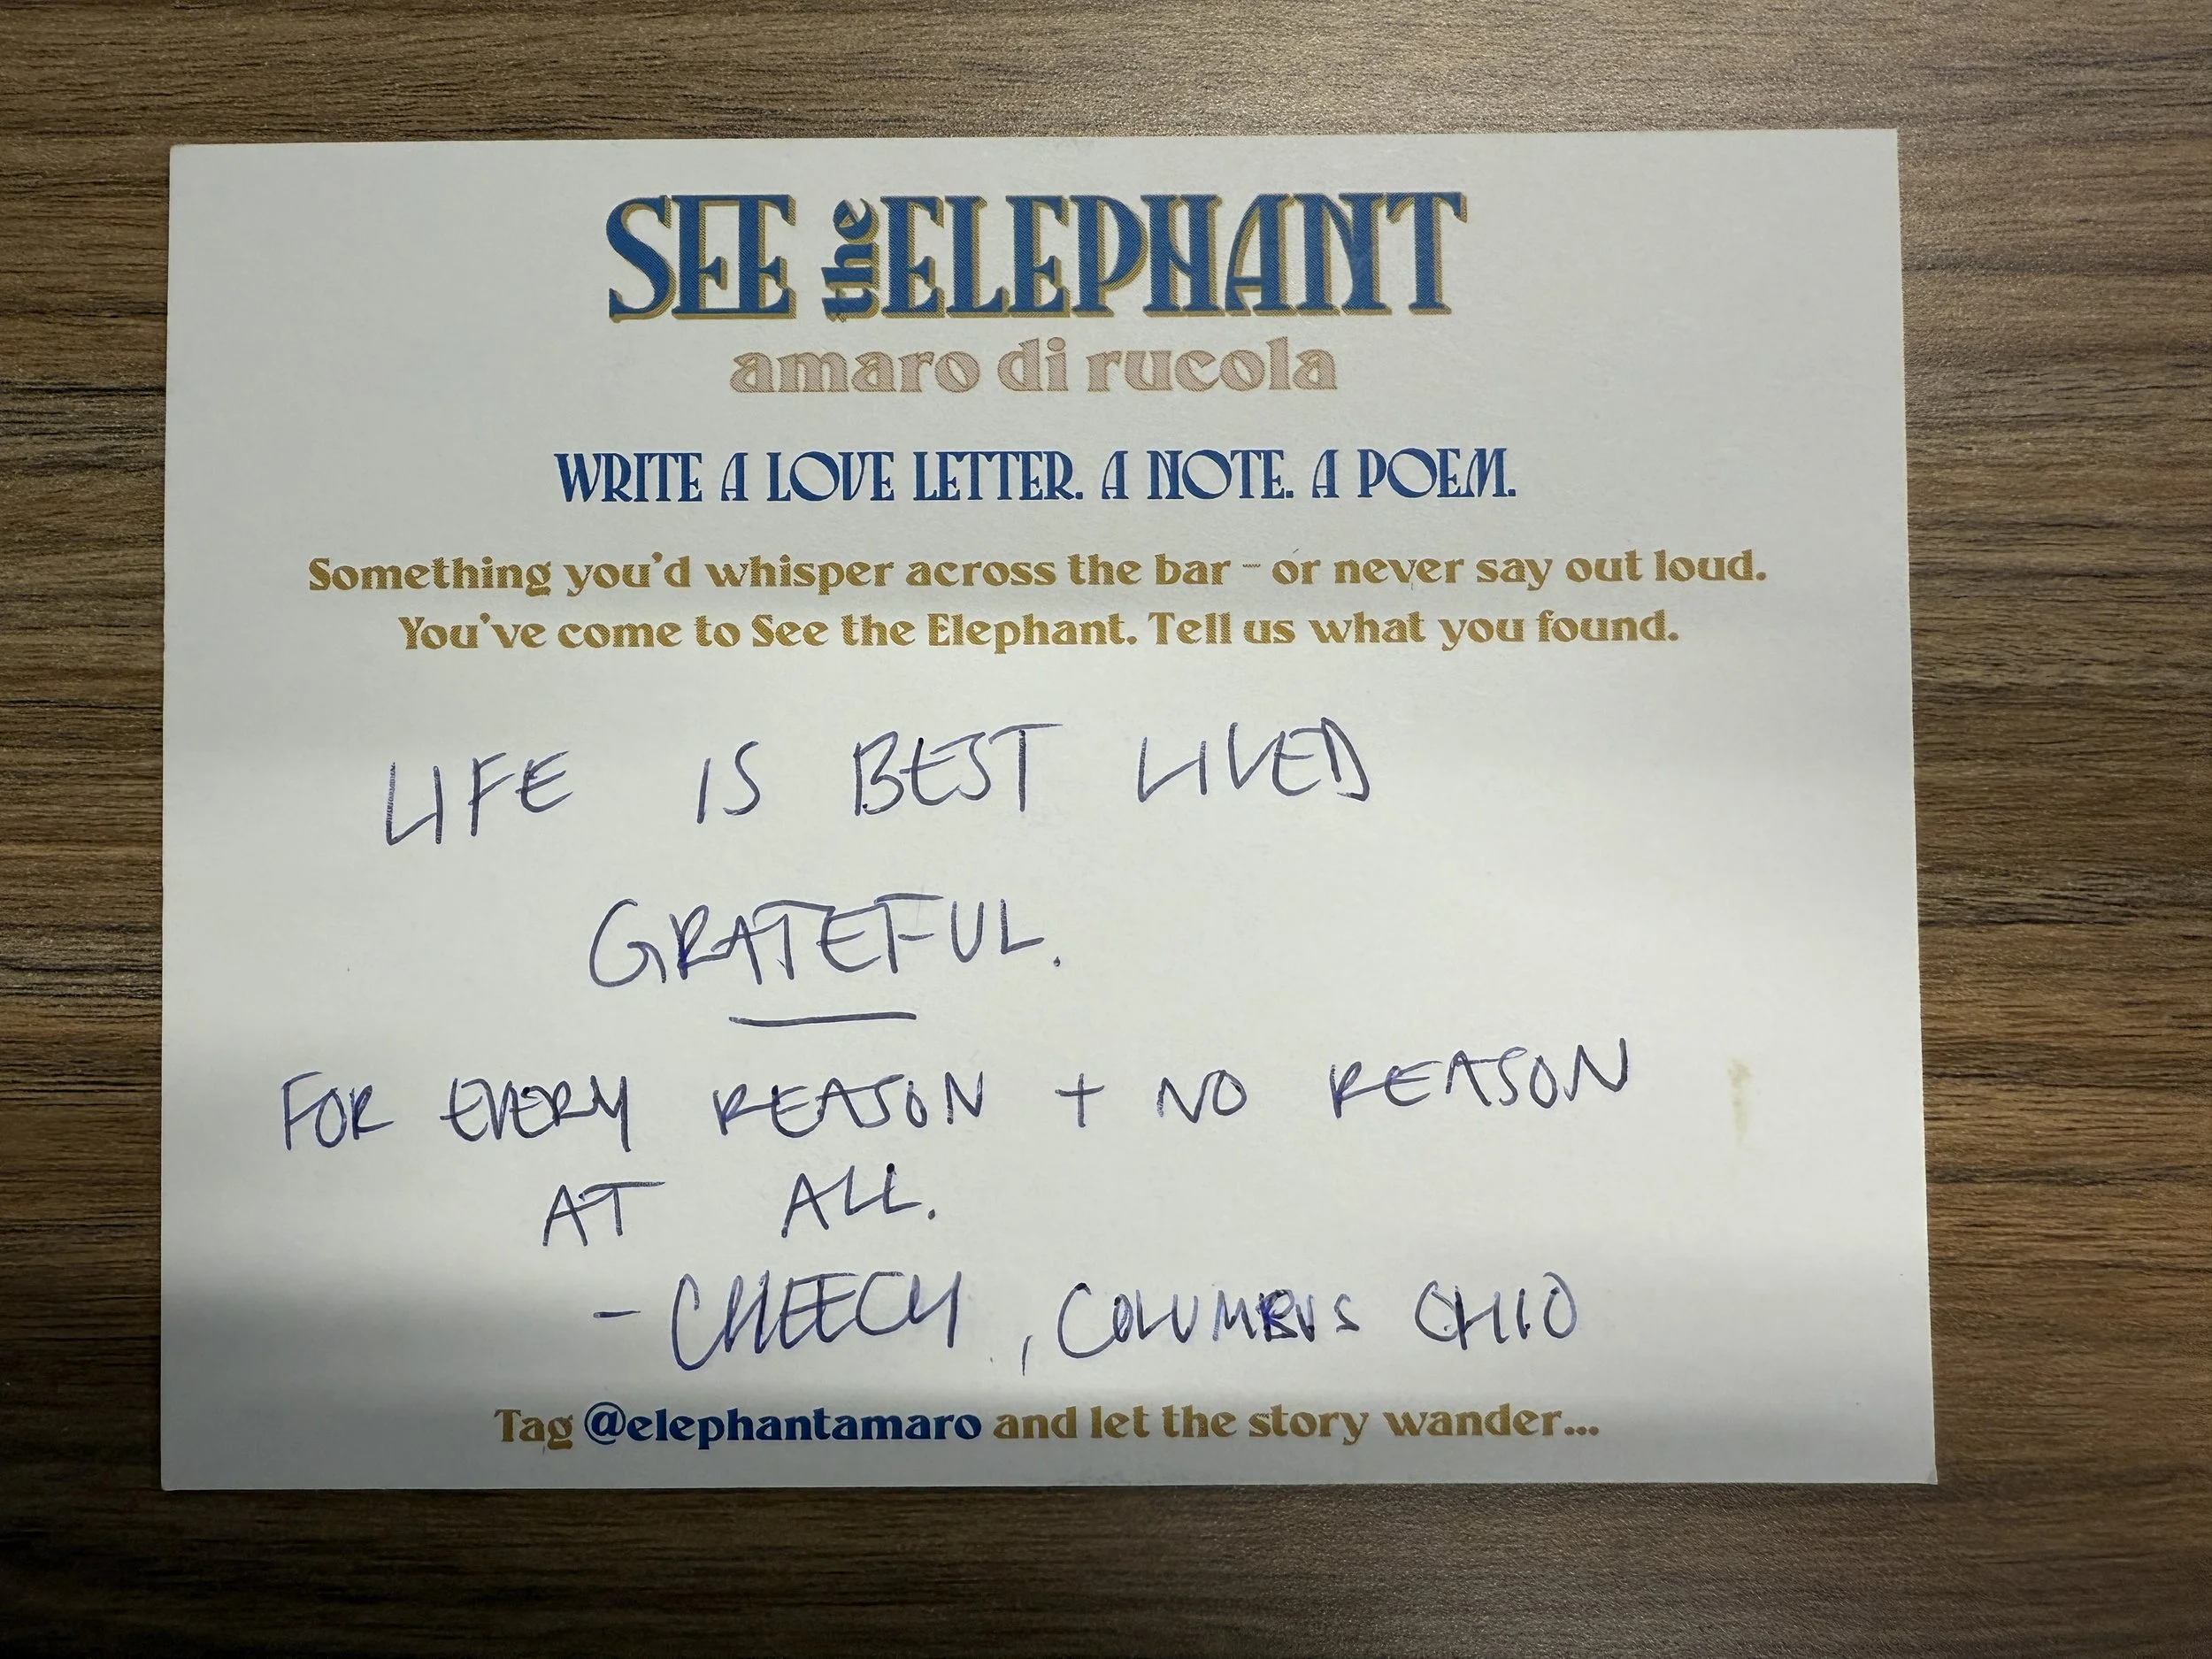 SEE the ELEPHANT
amaro di rucola
WRITE A LOVE LETTER. A NOTE. A POEM.
Something you'd whisper across the bar - or never say out loud.
You've come to See the Elephant. Tell us what you found.
LIFE IS BEST LIVED
GRATEFUL.
FOR EVERY REASON + NO REASON
AT ALL.
- CHEECH, COLUMBUS OHIO
Tag @elephantamaro and let the story wander...